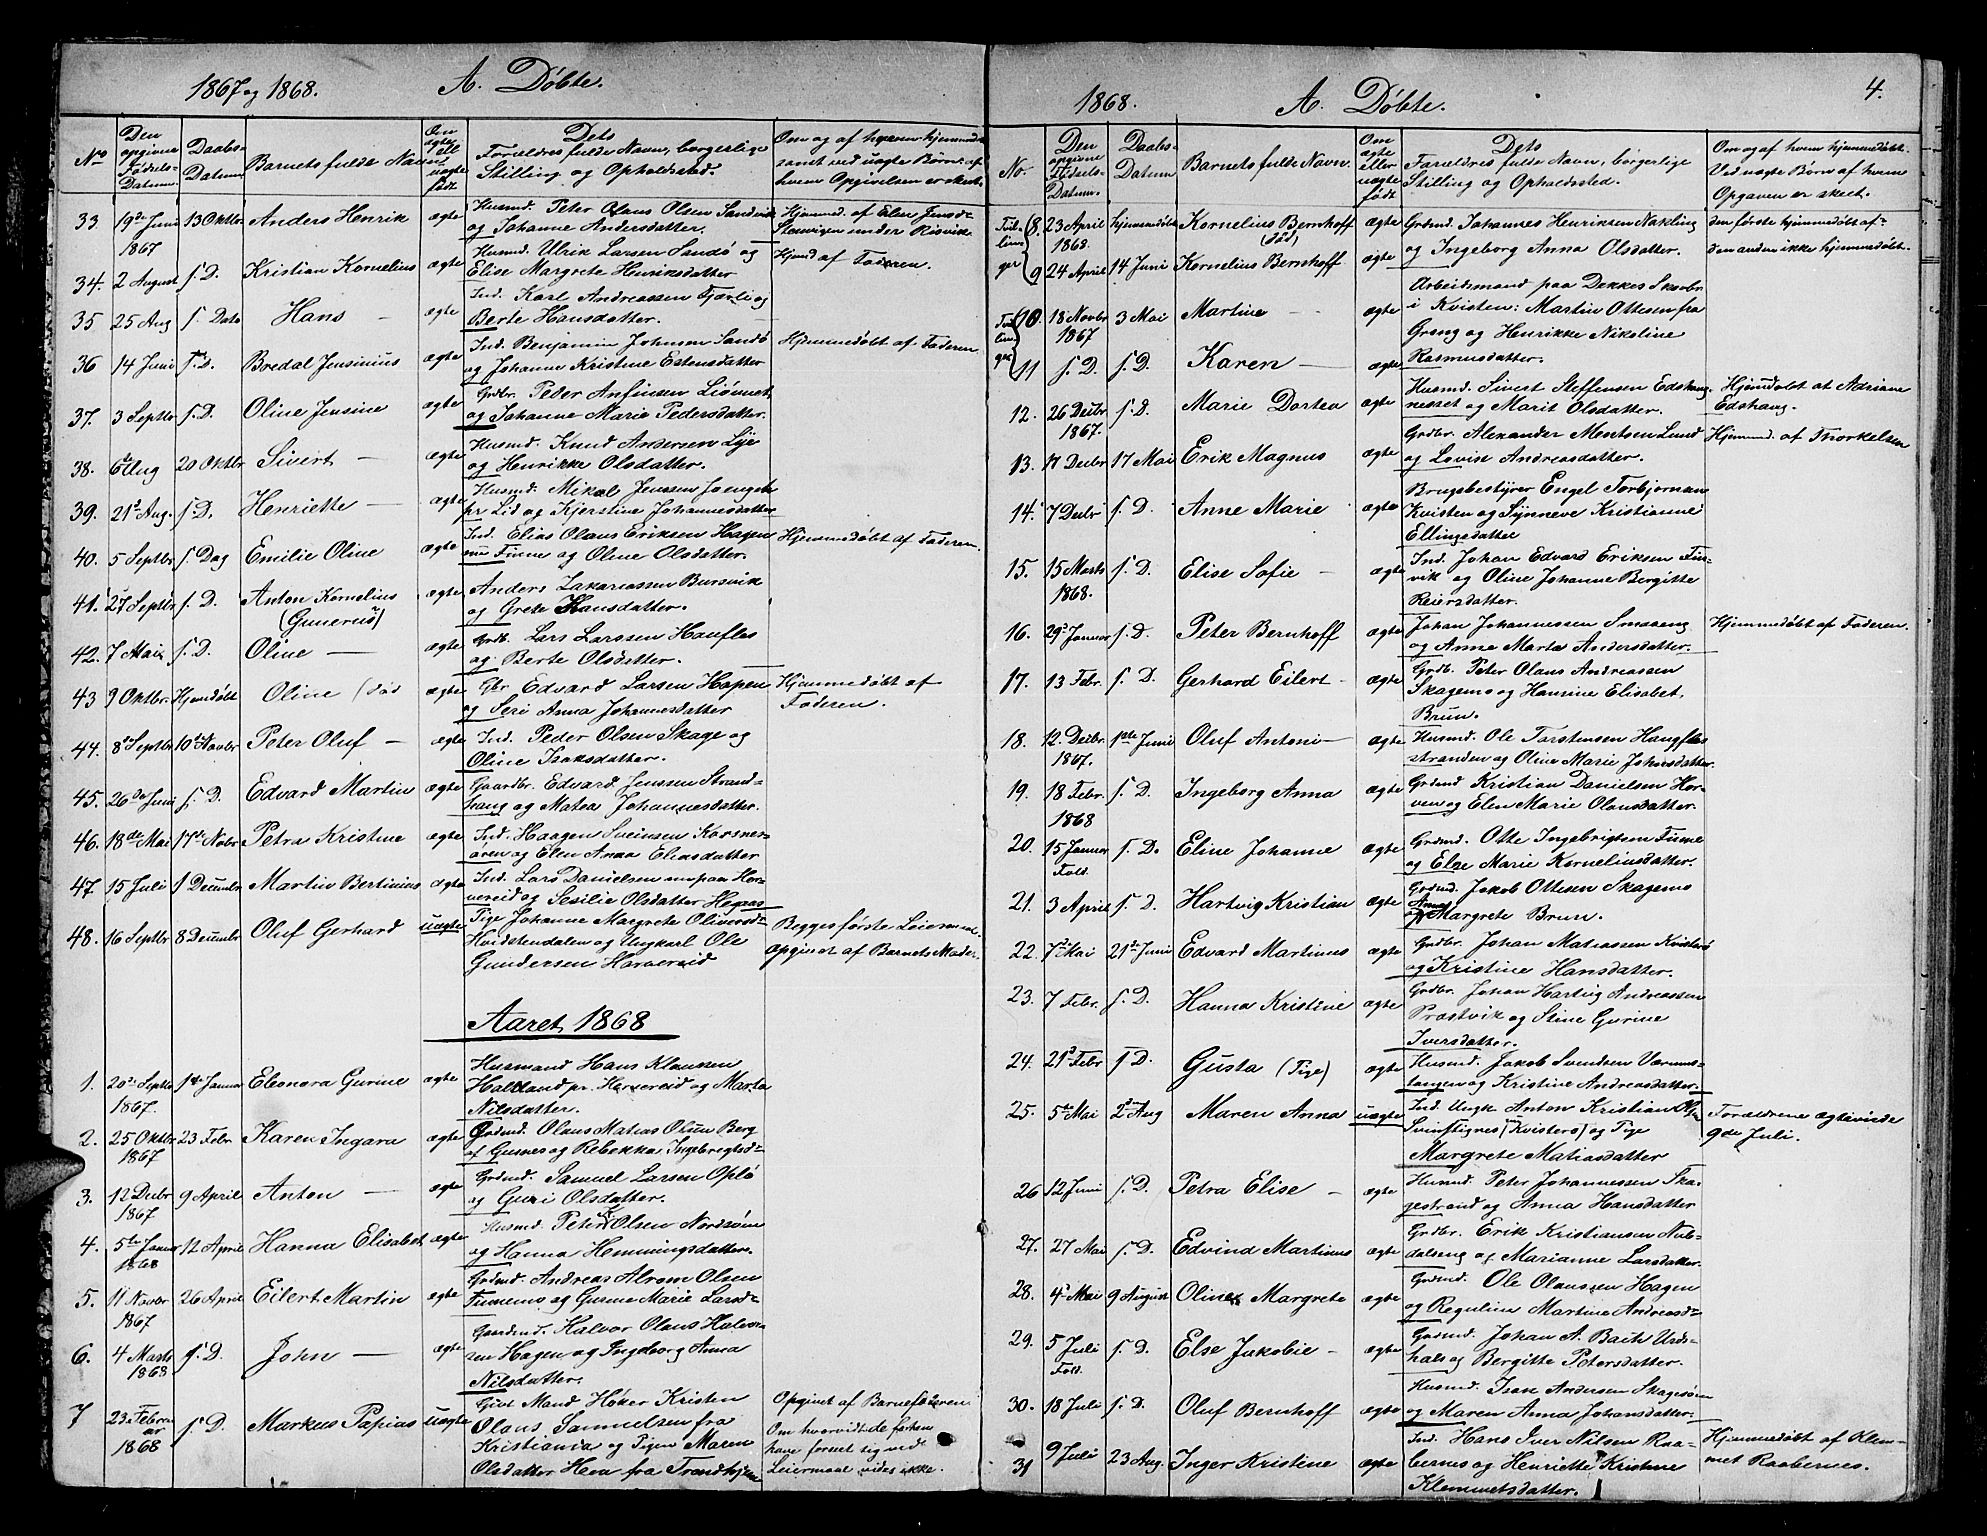 1867 og 1868. A. Döbte.
No
Den opgivne Fødsels-Datum.
Daabs-Datum
Barnets fulde Navn.
Om ægte ell uægte født.
Dets Forældres fulde Navn, borgerlige Stilling og Opholdssted.
Om og af hvem hjemmedöbt samt ved uægte Börn: af hvem Opgivelsen er skeet.
33. 19de Juni 1867 13 Oktbr Anders Henrik ægte Husmd. Peter Olaus Olsen Sandvik
og Johanne Andersdatter. Hjemmed. af Elen Jensd:
under Risvik.
34. 2 August s. D. Kristian Kornelius ægte Husmd. Ulrik Larsen Sandö og
Elise Margrete Henriksdatter Hjemd af Faderen.
35 25 Aug s. Dato Hans — ægte Ind. Karl Andreassen Fjærli og
Berte Hansdatter. —
36 14 Juni s. D. Bredal Jensinius ægte Ind. Benjamin Johnsen Sandö
og Johanne Kristine Estensdatter Hjemmedöbt af Faderen
37. 3 Septbr s. D. Oline Jensine ægte Grdbr. Peder Anfinsen Liönnest
og Johanne Marie Pedersdatter.
38. 6te Aug 20 Oktbr Sivert — ægte Husmd. Knud Andersen Lye
og Henrikke Olsdatter.
39. 21de Aug. s. D. Henriette — ægte Husmd. Mikal Jenssen
pr Lid og Kjerstine Johannesdatter
40. 5 Septbr s. Dag Emilie Oline ægte Ind. Elias Olaus Eriksen Hagen
Finne og Oline Olsdatter. Hjemmedöbt af Faderen.
41. 27 Septbr s. D. Anton Kornelius
(Gunerius) ægte Anders Zakariassen Bursvik
og Grete Hansdatter.
42. 7 Mai s. D. Oline — ægte Grdb. Lars Larssen Haufles
og Berte Olsdatter.
43 9 Oktbr. Hjemdöbt Oline (död ægte Gbr Edvard Larsen Hopen
og Seri Anna Johannesdatter Hjemmedöbt af
Faderen.
44. 8de Septbr 10de Novbr Peter Oluf — ægte Ind. Peder Olsen Skage og
Oline Isaksdatter.
45. 26de Juni s. D. Edvard Martin ægte Gaardbr. Edvard Jenssen Strand-
hang og Matea Johannesdatter.
46. 18de Mai 17de Nobr Petra Kristine ægte Ind. Haagen Sveinsen Korsner-
ören og Elen Anna Eliasdatter
47. 15 Juli 1 Decembr Martin Bertinius ægte Ind. Lars Danielsen Hor-
vereid og Sesilie Olsdatter
48. 16 Septbr 8 Decembr Oluf Gerhard uægte Pige Johanne Margrete Oliversd:
Hvidstendalen og Ungkarl Ole
Gundersen Horvereid Begges förste Leierm:
opgivet af Barnets Moder.
Aaret 1868
1. 20de Septbr 1867. 1ste Januar Eleonora Gurine ægte Husmand Hans Klausen
Haltland pr. Horvereid og Marta
Nilsdatter.
2. 25 Oktbr 1867 23 Febr. Karen Ingara ægte Grdmd. Olaus Matias Olsen Berg
af Gusnes og Rebekka Ingebrigtsd:
3. 12 Decbr 1867 9 April Anton — ægte Grdmd. Samuel Larsen Oplö
og Guri Olsdatter.
4. 5te Januar 1868 12 April Hanna Elisabet ægte Husmd. Peter K Olsen Nordsöen
og Hanna Hemmingsdatter.
5. 11 Novbr 1867 26 April Eilert Martin ægte Grdmd. Andreas Alrom Olsen
Finnemo og Gusine Marie Larsd:
6. 4 Marts 1868 s. D. John — ægte Gaardmd. Halvor Olaus Halvor-
sen Hagen og Ingeborg Anna
Nilsdatter.
7 23de Februar 1868 s. D. Markus Papias uægte Givt Mand Höker Kristen
Olaus Samuelsen fra
Kristiania og Pigen Maren
Olsdatter Heva fra Trondhjem Opgivet af Barnefaderen.
Om hvorvidt de før have forseet sig ved
Leiermaal vides ikke.
1868. A. Döbte. 4.
No.
Den opgivne Födsels-Datum.
Daabs-Datum
Barnets fulde Navn.
Om ægte eller uægte födt
Dets Forældres fulde Navn, borgerlige Stilling og Opholdssted.
Om og af hvem hjemmedöbt. Ved uægte Börn af hvem Opgaven er skeet.
Tvillinger
8. 23 April 1868. hjemmedöbt Kornelius Bernhoff
(död) ægte Grdmd. Johannes Henriksen Nakling
og Ingeborg Anna Olsdatter. den förste hjemmedöbt af-
den anden ikke hjemmedöbt.
9 24 April 14 Juni Kornelius Bernhoff ægte
Tvillinger
10. 18 Novbr 1867 3 Mai Martine — ægte Arbeidsmand paa Dekkes Skovbr.
i Kvisten: Martin Ottesen fra
Grong og Henrikke Nikoline
Rasmusdatter.
11 s. D. s. D. Karen — ægte
12. 26 Decbr 1867. s. D. Marie Dortea ægte Husmd. Sivert Steffensen Edshaug-
nesset og Marit Olsdatter. Hjemdöbt af Adriane
Edshaug.
13. 17 Decbr 17 Mai Erik Magnus ægte Grdbr. Alexander Mentsen Lund
og Lovise Andreasdatter. Hjemmed. af Thorkelsen
14. 7 Decbr s. D. Anne Marie ægte Brugsbestyrer Engel Torbjörnsen
Kvisten og Synneve Kristianne
Ellingsdatter
15. 15 Marts 1868. s. D. Elise Sofie — ægte Ind. Johan Edvard Eriksen Fin-
vik og Oline Johanne Bergitte
Reiersdatter.
16. 29de Januar s. D. Peter Bernhoff ægte Johan Johannessen Smaaeng
og Anne Marta Andersdatter. Hjemmedöbt af Faderen.
17. 13 Febr. s. D. Gerhard Eilert — ægte Grdb. Peter Olaus Andreassen
Skagemo og Hansine Elisabet.
Brun.
18. 12. Decbr. 1867. 1ste Juni Oluf Antoni — ægte Husmd. Ole Torstensen Haugfles
stranden og Oline Marie Johnsdatter.
19. 18 Febr. 1868 s. D. Ingeborg Anna ægte Grdmd Kristian Danielsen Hor-
ven og Elen Marie Olausdatter.
20. 15 Januar Fold. s. D. Eline Johanne ægte Grdmd. Otte Ingebrigtsen Finne
og Else Marie Korneliusdatter.
21. 3 April s. D. Hartvig Kristian ægte Grdmd. Jakob Ottesen Skagemo
og Anne Margrete Brun.
22. 7de Mai 21de Juni Edvard Martinus ægte Grdbr. Johan Matiassen Kvisterö
og Kristine Hansdatter.
23. 7 Febr. s. D. Hanna Kristine ægte Grdbr. Johan Hartvig Andreassen
Præstvik og Stine Gurine
Iversdatter.
24. 21de Febr s. D. Gusta (Pige) ægte Husmd. Jakob Svendsen Værums-
tangen og Kristine Andreasdatter.
25. 5te Mai 2den Aug Maren Anna uægte Ind. Ungk Anton Kristian Olsen
Svinstignes (Kvisterö) og Pige
Margrete Matiasdatter Forældrene ægteviede
9de Juli.
26 12 Juni s. D. Petra Elise — ægte Husmd. Peter Johannessen Ska-
gestrand og Anna Hansdatter
27. 27 Mai s. D. Edvind Martinus ægte Grdbr. Erik Kristiansen Nub-
dalseng og Marianne Larsdatter.
28. 4de Mai 9 August Oline Margrete ægte Grdmd. Ole Olaussen Hagen
og Reguline Martine Andreasd:
29. 5 Juli Fold. s. D. Else Jakobie — ægte Grdmd. Johan A. Bach Urds-
hals og Bergitte Petersdatter.
30. 18 Juli s. D. Oluf Bernhoff ægte Husmd. Ivan Andersen Skagesöen
og Maren Anna Johansdatter.
31 9 Juli 23 Aug. Inger Kristine ægte Ind. Hans Iver Nilsen Raa-
bernes og Henriette Kristine
Klemmetsdatter. Hjemmedöbt af Klem-
met Raabernes.